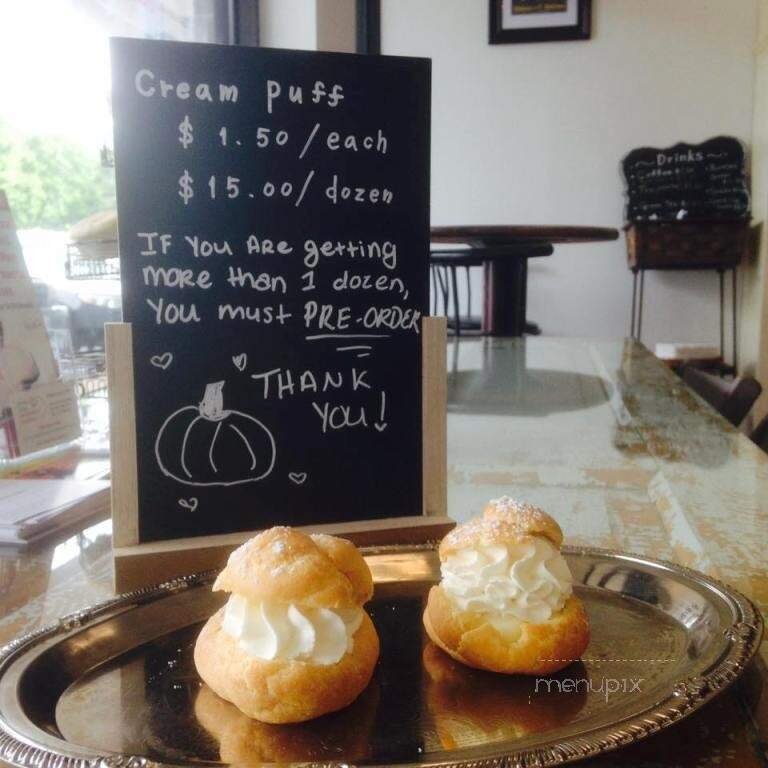 Cream puff
$ 1.50/each
$15.00/dozen
IF YOU ARE getting
more than 1 dozen,
YOU must PRE-ORDER
THANK
YOU!
Drinks
menupix